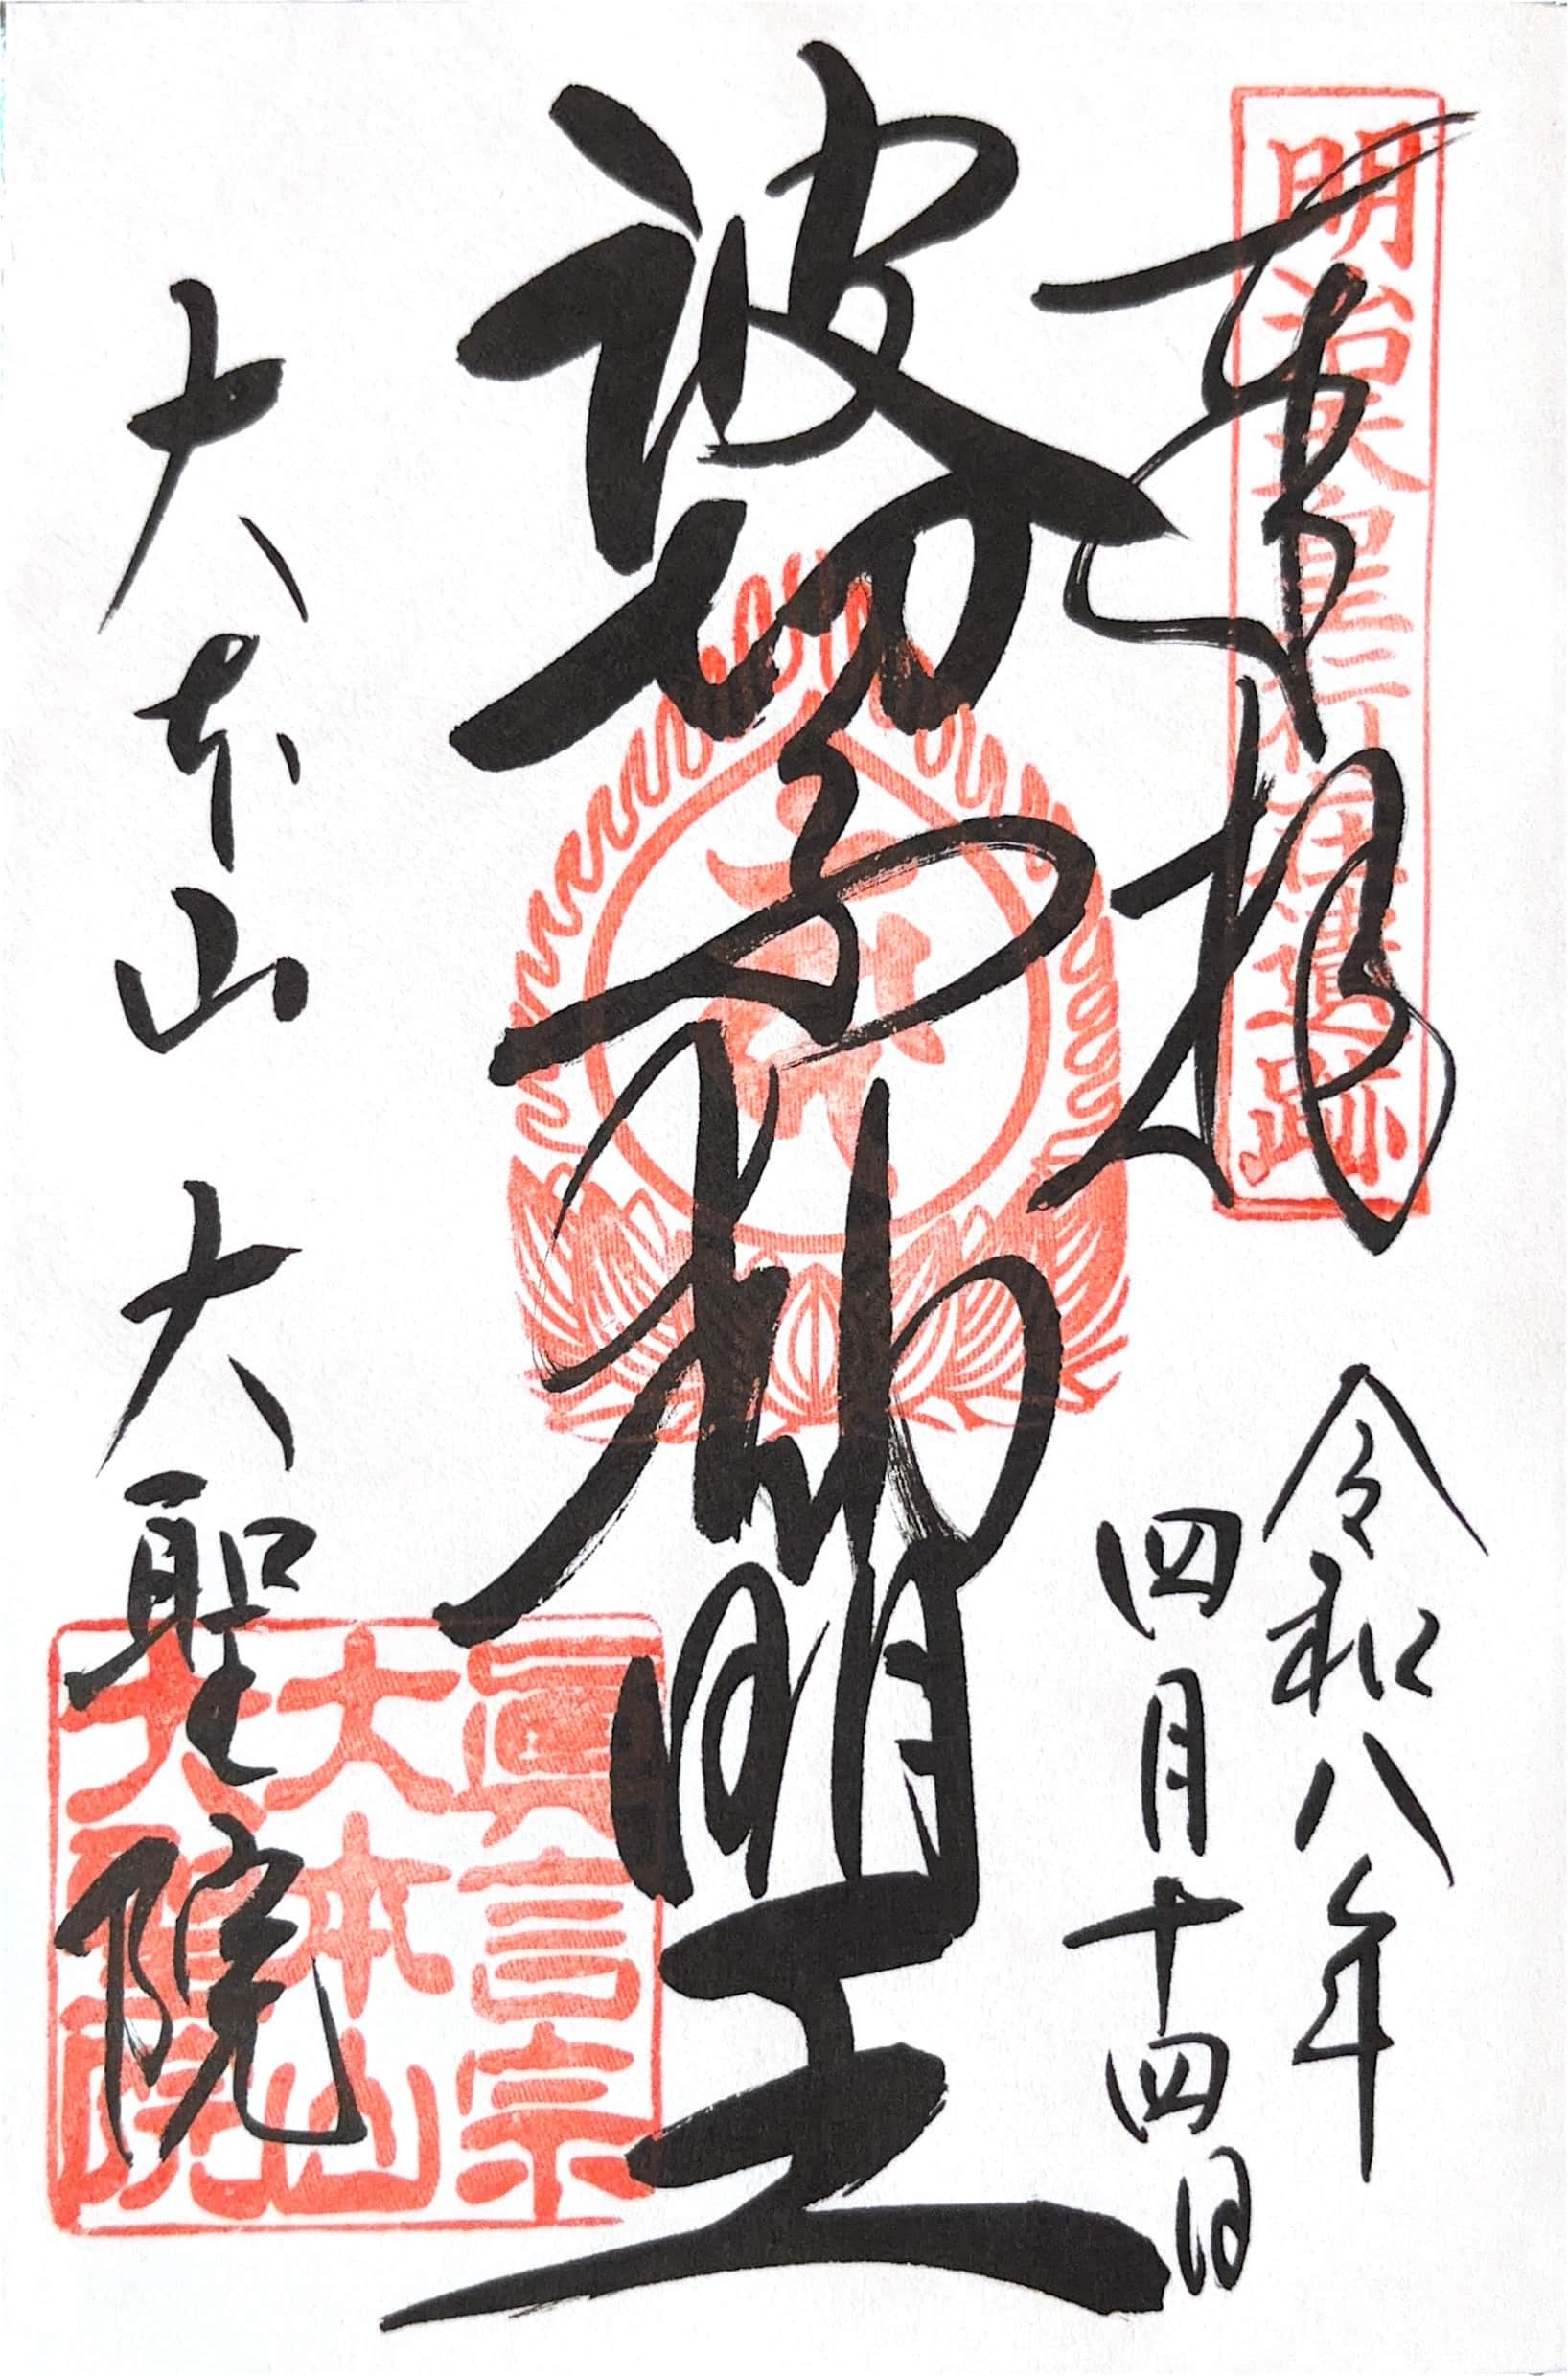 奉拝
明治天皇行在遺跡
令和八年
四月十四日
波切不動明王
眞言宗
大本山
大聖院
大本山 大聖院